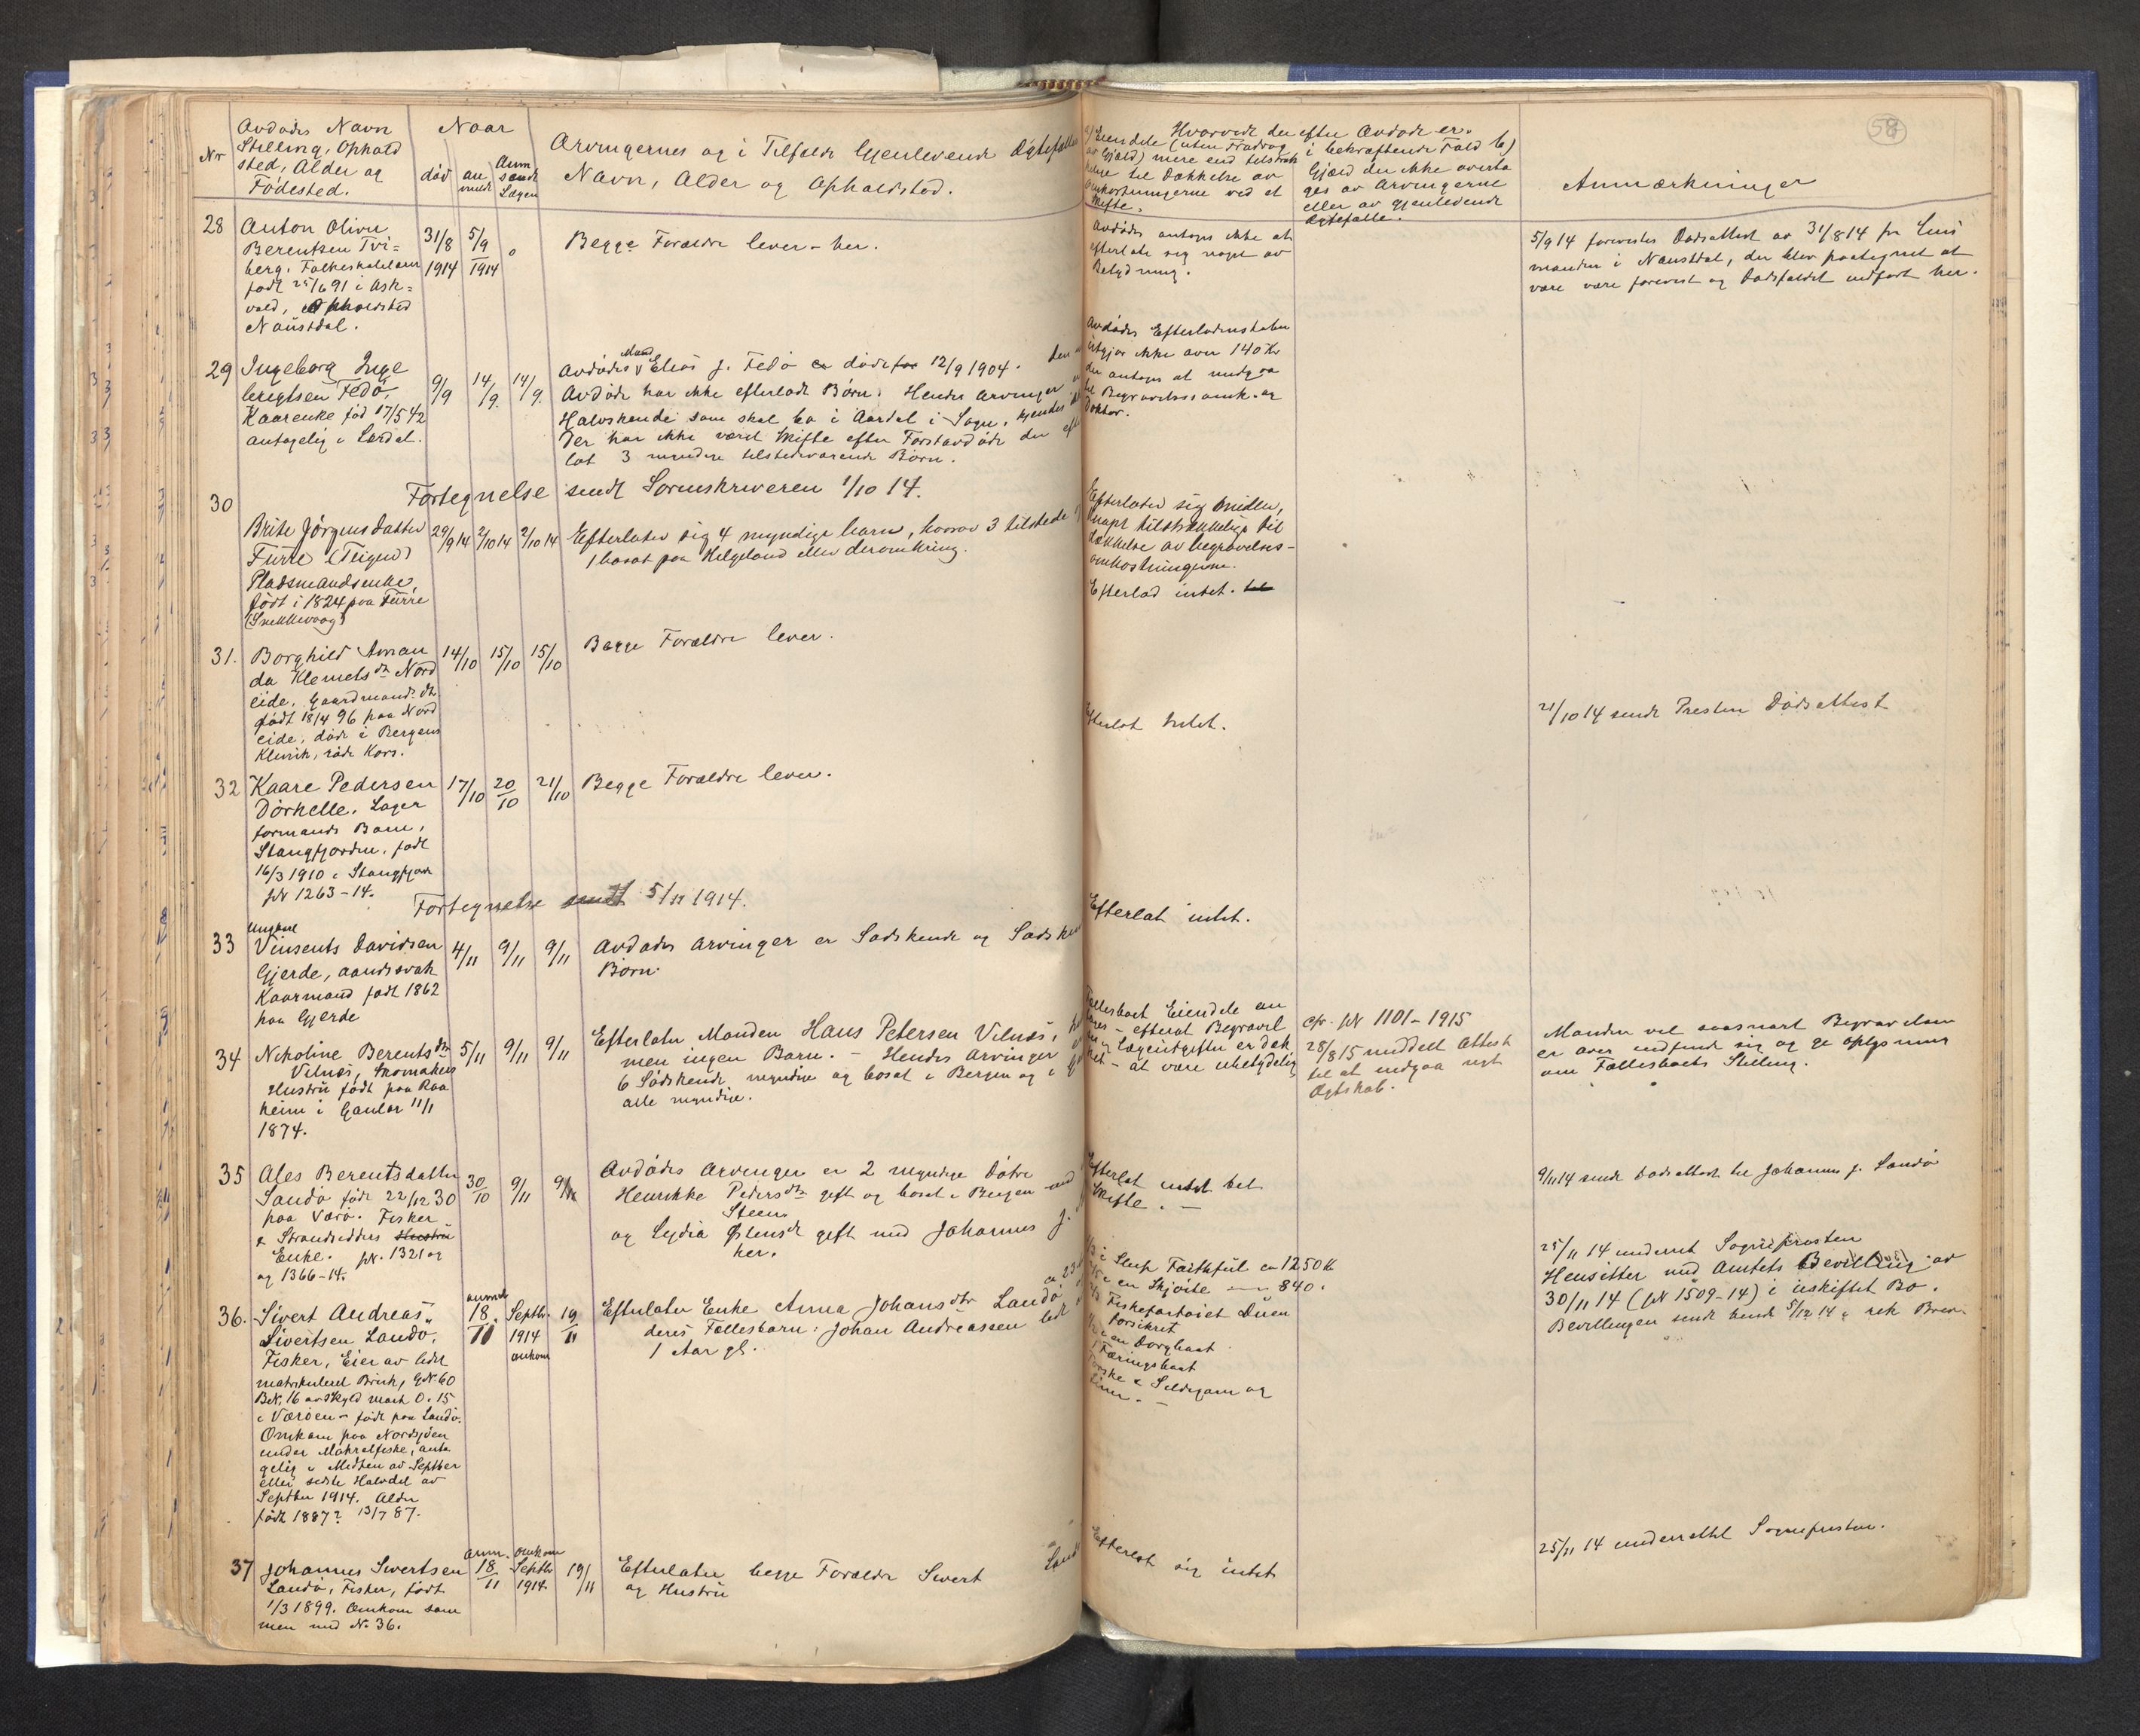 58
Nr
Avdødes Navn
Stilling, Ophold
sted, Alder og
Fødested.
Naar
død
an
meldt
Anm
sendt
Lagen
Arvingernes og i Tilfælde Gjenlevende Ægtefælles
Navn, Alder og Opholdsted.
Hvorvidt der efter Avdøde er.
a) Eiendele (uten Fradrag
av Gjæld) mere end tilstræk
kelige til Dækkelse av
Omkostningerne ved et
Skifte.
i bekræftende Fald b)
Gjæld der ikke overta
ges av Arvingerne
eller av gjenlevende
Ægtefælle.
Anmærkninger
28
Anton Oliver
Berentsen Tvi=
berg, Folkeskolelærer
født 25/6 91 i Ask=
vold, Opholdsted
Naustdal.
31/8
1914
5/9
1914
Begge Forældre lever - her.
Avdøde antages ikke at
efterlate sig noget av
Betydning.
5/9 14 forevistes Dødsattest av 31/8 14 fra Lens
manden i Naustdal, der blev paategnet at
være være forevist og Dødsfaldet indført her.
29
Ingeborg Inge
brigtsen Fedø,
Kaarenke fød 17/5 42
antagelig i Lærdal.
9/9
14/9
14/9
Mand
Avdødes Elias J. Fedø døde 12/9 1904. Den
Avdøde har ikke efterladt Børn. Hendes Arvinger
Halvskende som skal bo i Aardal i Sogn, kjendes
Der har ikke været Skifte efter Førstavdøde der efter
lot 3 myndige tilstedeværende Børn.
Avdødes Efterladenskaber
utgjør ikke over 140 Kr
der antages at medgaa
til Begravelsesomk. og
Doktor.
Fortegnelse sendt Sorenskriveren 1/10 14.
30
Brite Jørgensdatter
Furre (Teigen)
Pladsmandsenke,
født i 1824 paa Furre
(Snekkevaag)
29/9 14
2/10 14
2/10 14
Efterlater sig 4 myndige barn, hvorav 3 tilstede
1 bosat paa Helgeland eller deromkring.
Efterlater sig midler,
knapt tilstrækkelige til
dækkelse av begravelses-
omkostningerne.
Efterlod intet.
31.
Borghild Aman
da Klemetsdtr Nord
eide, Gaardmands dtr
født 18/4 96 paa Nord
eide, døde i Bergens
Klinik, røde Kors.
14/10
15/10
15/10
Begge Forældre lever.
Efterlot Intet.
21/10 14 sendt Presten Dødsattest
32
Kaare Pedersen
Dørhelle, Lager
formands Barn,
Stangfjorden, født
16/3 1910 i Stangfjorden
JN 1263-14.
17/10
20/10
21/10
Begge Forældre lever.
Fortegnelse sendt 5/11 1914.
33
Ungkarl
Vinsents Davidsen
Gjerde, aandssvak
Kaarmand født 1862
paa Gjerde
4/11
9/11
9/11
Avdødes Arvinger er Sødskende og Sødsken
Børn.
Efterlat intet.
34
Nikoline Berentsdtr
Vilnæs, Skomakers
Hustru født paa Raa
heim i Gaular 11/1
1874.
5/11
9/11
9/11
Efterlater Manden Hans Petersen Vilnæs,
men ingen Barn. - Hendes Arvinger
6 Sødskende, myndige og bosat i Bergen og i
alle myndige.
Fællesboet Eiendele an
tages - efterat Begravel
ses og Lægeutgifter er dæk
ket - at være ubetydelig
Cfr. JN 1101-1915
28/8 15 meddelt Attest
til at indgaa nyt
Ægtskab.
Manden vil saasnart Begravelsen
er over indfinde sig og gi oplysning
om Fællesboets Stilling.
35
Ales Berentsdatter
Sandø født 22/12 30
paa Værø. Fisker
& Strandsidders Hustru
Enke. JN. 1321 og
og 1366-14.
30/10
9/11
9/11
Avdødes Arvinger er 2 myndige Døtre
Henrikke Pedersdtr gift og bosat i Bergen med
Steen
og Lydia Østensdtr gift med Johannes J.
her.
Efterlat intet bet
Skifte. -
9/11 14 sendt Dødsattest til Johannes J. Sandø
36.
Sivert Andreas
Sivertsen Landø,
Fisker, Eier av lidet
matrikuleret Bruk, GN. 60
BN. 16 av Skyld mark 0.15
i Værøen - født paa Landø.
Omkom paa Nordsjøen
under Makrelfiske, anta
gelig i Midten av Septber
eller sidste Halvdel av
Septber 1914. Alder
født 1887? 13/7 87.
anmeldt
18/11
Septbr.
1914
omkom
19/11
Efterlater Enke Anna Johansdtr Landø ca 23
deres Fællesbarn: Johan Andreassen
1 Aar gl.
i Slup Faithful ca 1250 Kr
i en Skjøite 840.
Fiskefartøiet Duen
forsikret
i en Dorgbaat
1 Færingsbaat
Torske & Sildegarn og
Liner. -
25/11 14 underret Sogneprosten
Hensitter med Amtets Bevilling av
30/11 14 (JN 1509-14) i uskiftet Bo.
Bevillingen sendt hende 5/12 14 i rek Brev.
37
Johannes Sivertsen
Landø, Fisker, født
1/3 1899. Omkom sam
men med No 36.
anm.
18/11
omkom
Septbr
1914.
19/11
Efterlater begge Forældre Sivert Land
og Hustru
Efterlot sig intet
25/11 14 underrettet Sogneprosten.